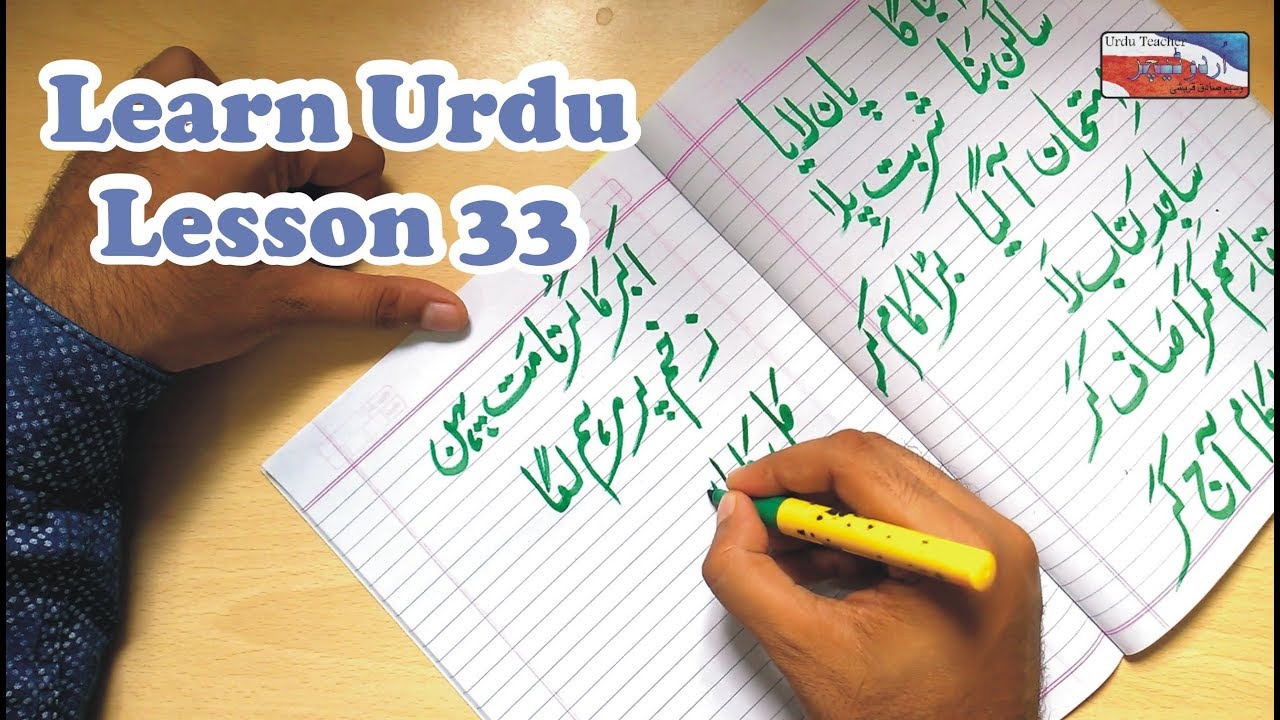 Learn Urdu
Lesson 33
Urdu Teacher
اُردو ٹیچر
وسیم صادق قریشی
سالن بَنا
پان لایا
شربت پِلا
اِمتحان آ گیا
بڑا کام کَر
سَاجِد کَتاب لَا
کَمرا صَاف کَر
کام آج کَر
اَکبَر کا کُرتا مَت پہن
زخم پر مرہم لگا